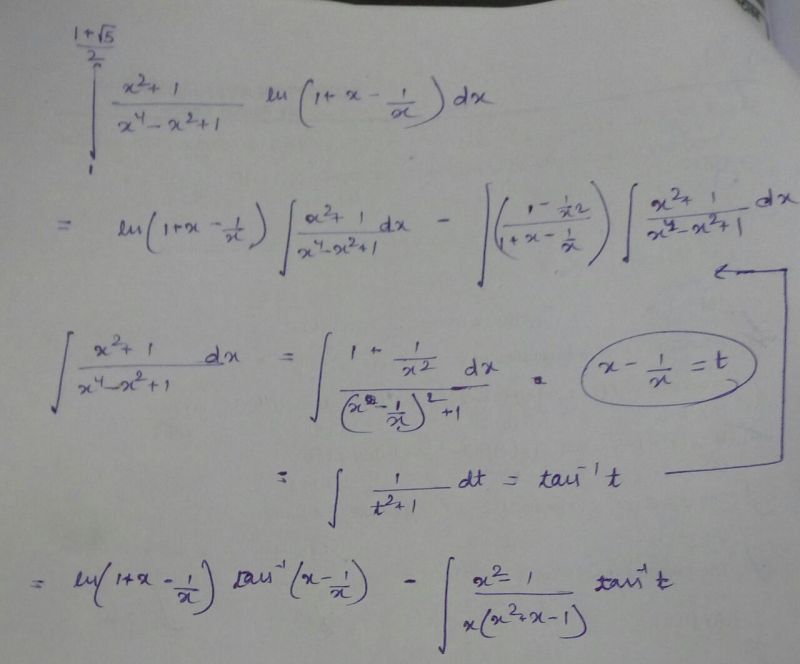 ∫₁^((1+√5)/2) (x²+1)/(x⁴−x²+1) ln(1+x−1/x) dx
= ln(1+x−1/x) ∫ (x²+1)/(x⁴−x²+1) dx − ∫ ((1−1/x²)/(1+x−1/x)) ∫ (x²+1)/(x⁴−x²+1) dx
∫ (x²+1)/(x⁴−x²+1) dx = ∫ (1+1/x²)/((x−1/x)²+1) dx . x−1/x = t
= ∫ 1/(t²+1) dt = tan⁻¹ t
= ln(1+x−1/x) tan⁻¹(x−1/x) − ∫ (x²−1)/(x(x²+x−1)) tan⁻¹ t